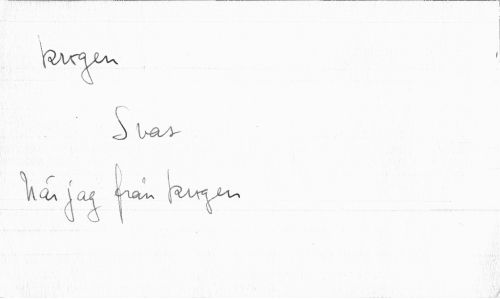 krogen
Svar
När jag från krogen